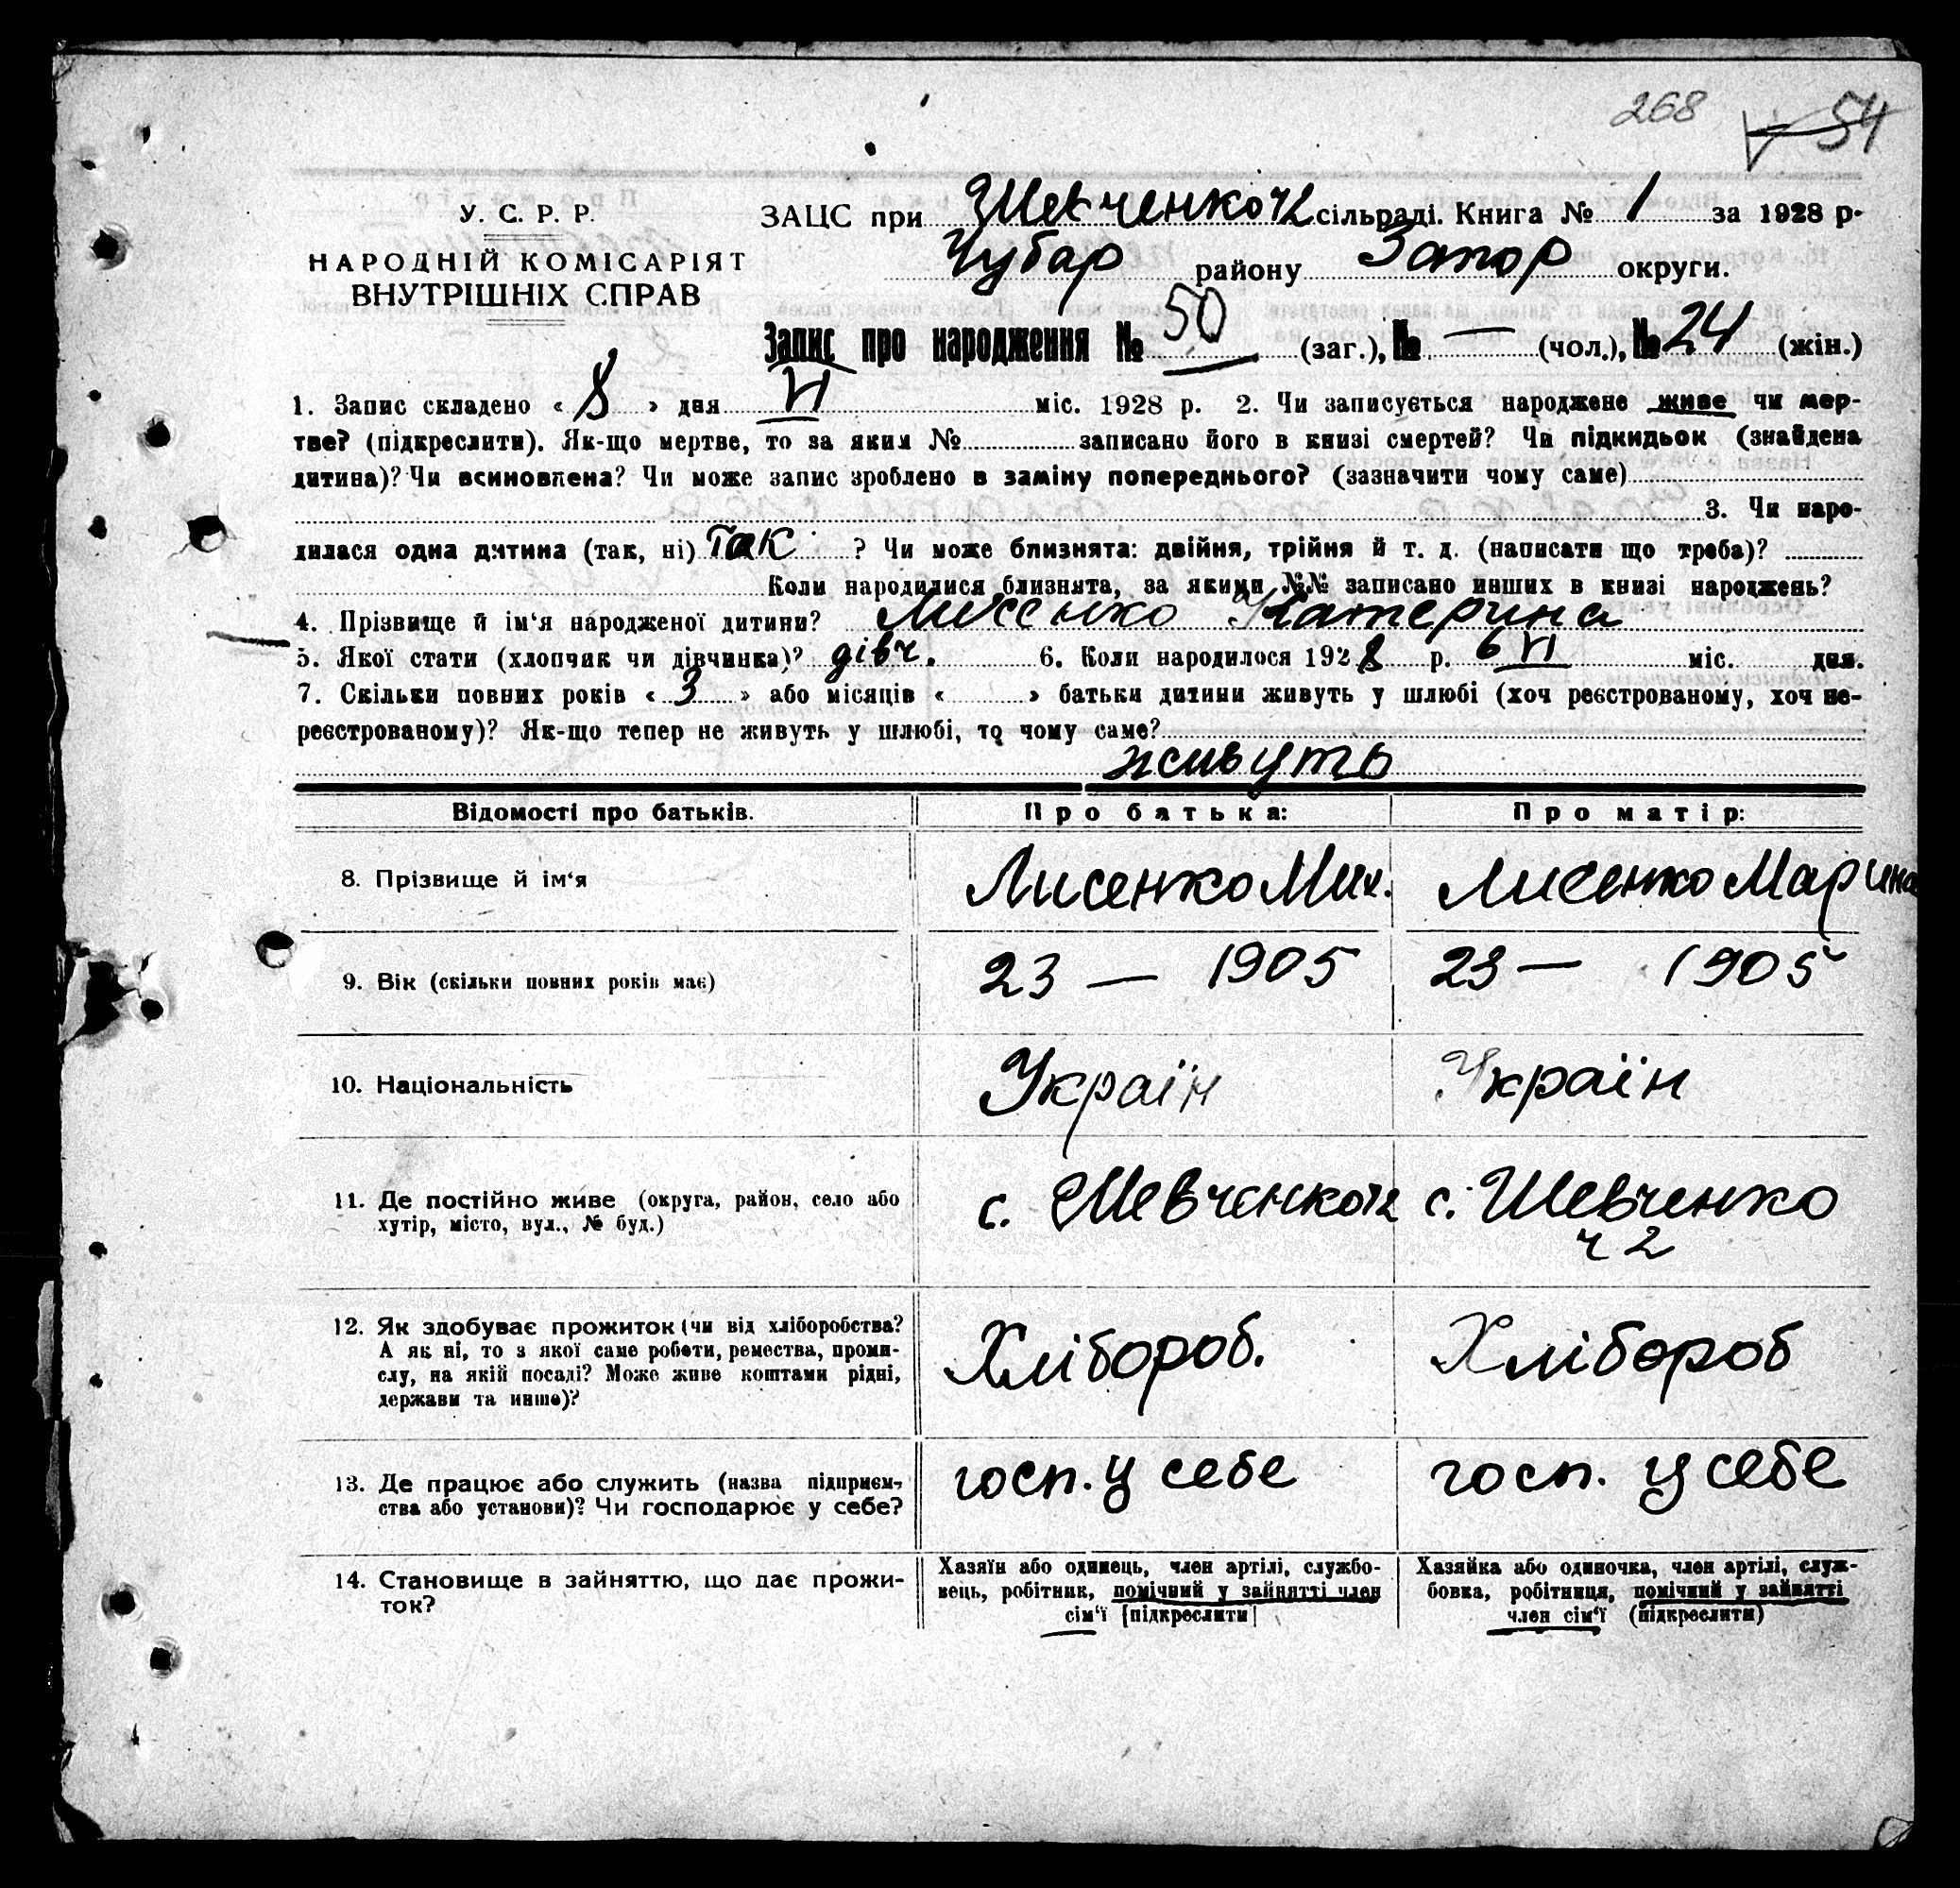 268 54
У. С. Р. Р.
НАРОДНІЙ КОМІСАРІЯТ
ВНУТРІШНІХ СПРАВ
ЗАЦС при Шевченко ч2 сільраді. Книга № 1 за 1928 р.
Чубар району Запор округи.
Запис про народження № 50 (заг.), № — (чол.), № 24 (жін.)
1. Запис складено « 8 » дня VI міс. 1928 р. 2. Чи записується народжене живе чи мер-
тве? (підкреслити). Як-що мертве, то за яким № записано його в книзі смертей? Чи підкидьок (знайдена
дитина)? Чи всиновлена? Чи може запис зроблено в заміну попереднього? (зазначити чому саме)
3. Чи наро-
дилася одна дитина (так, ні) Так ? Чи може близнята: двійня, трійня й т. д. (написати що треба)?
Коли народилися близнята, за якими №№ записано инших в книзі народжень?
4. Прізвище й ім‘я народженої дитини? Лисенко Катерина
5. Якої стати (хлопчик чи дівчинка)? дівч. 6. Коли народилося 1928 р. 6 VI міс. дня.
7. Скільки повних років « 3 » або місяців « » батьки дитини живуть у шлюбі (хоч реєстрованому, хоч не-
реєстрованому)? Як-що тепер не живуть у шлюбі, то чому саме?
живуть
Відомості про батьків. Про батька: Про матір:
8. Прізвище й ім‘я Лисенко Мих. Лисенко Марина
9. Вік (скільки повних років має) 23 — 1905 23 — 1905
10. Національність Україн Україн
11. Де постійно живе (округа, район, село або
хутір, місто, вул., № буд.)
с. Шевченко ч2 с. Шевченко
ч 2
12. Як здобуває прожиток (чи від хліборобства?
А як ні, то з якої саме роботи, ремества, проми-
слу, на якій посаді? Може живе коштами рідні,
держави та инше)?
Хлібороб. Хлібороб
13. Де працює або служить (назва підприєм-
ства або установи)? Чи господарює у себе?
госп. у себе госп. у себе
14. Становище в зайняттю, що дає прожи-
ток?
Хазяїн або одинець, член артілі, службо-
вець, робітник, помічний у зайнятті член
сім‘ї [підкреслити]
Хазяйка або одиночка, член артілі, служ-
бовка, робітниця, помічний у зайнятті
член сім‘ї (підкреслити)